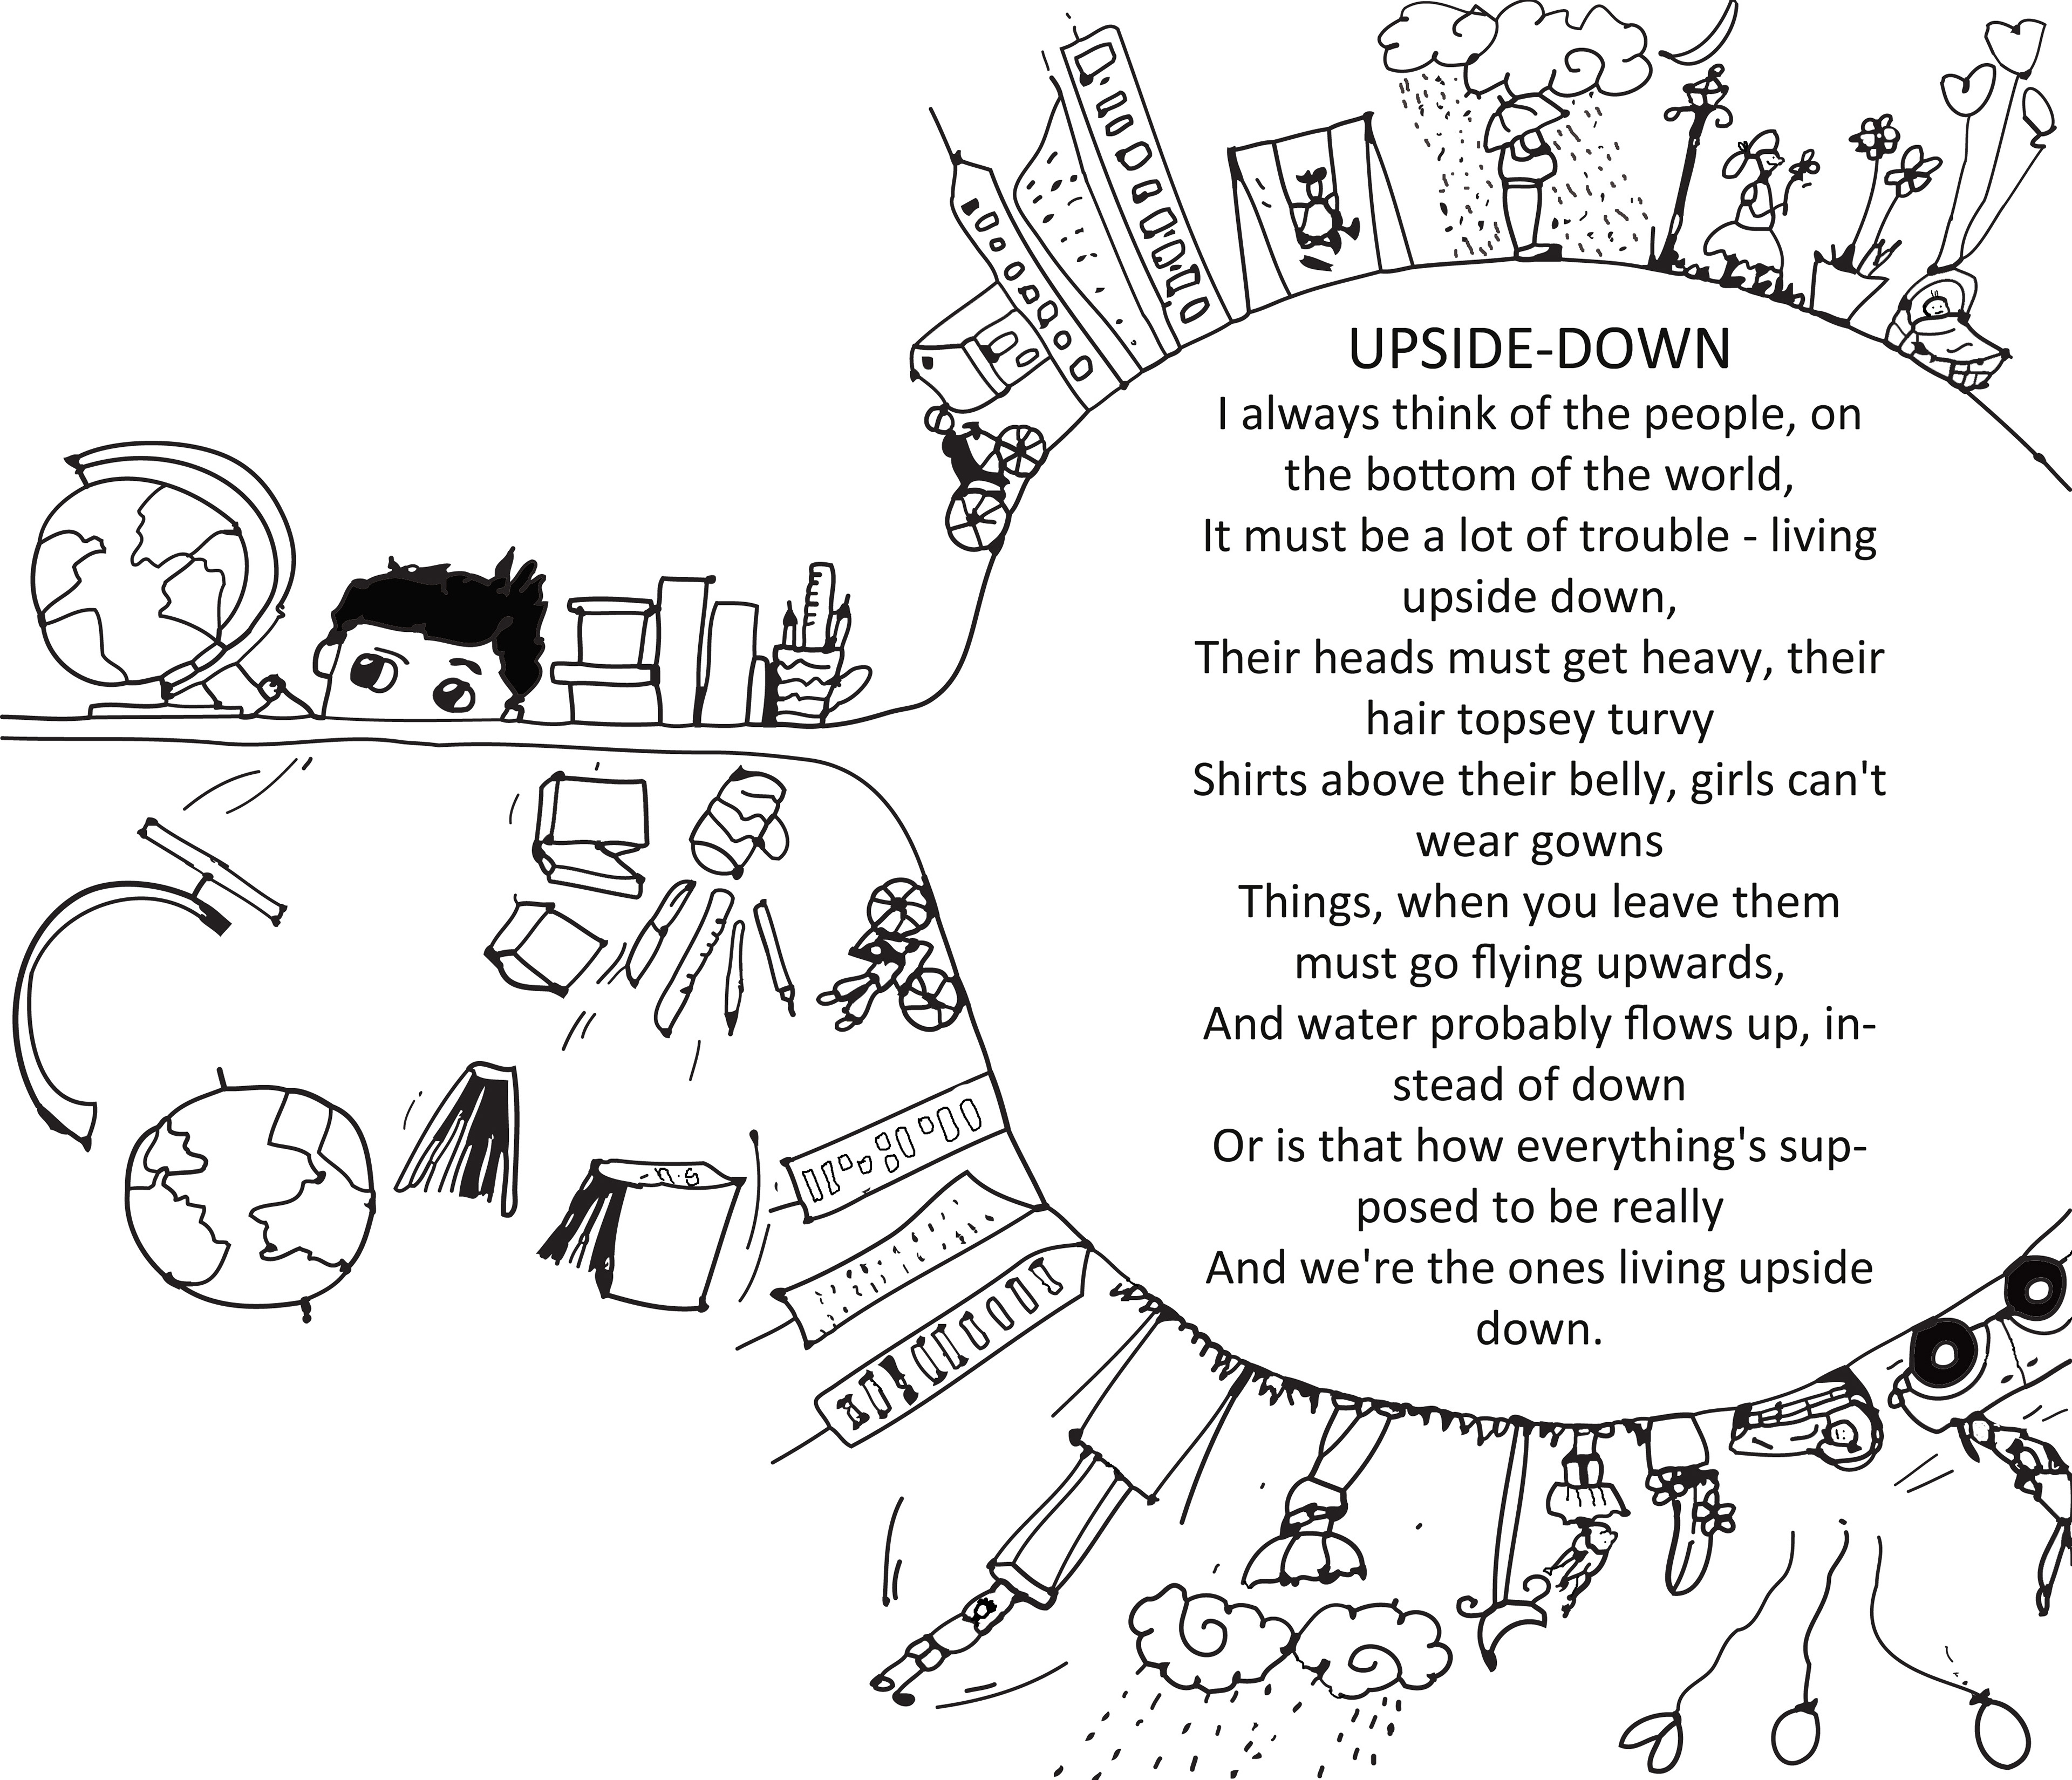 UPSIDE-DOWN
I always think of the people, on
the bottom of the world,
It must be a lot of trouble - living
upside down,
Their heads must get heavy, their
hair topsey turvy
Shirts above their belly, girls can't
wear gowns
Things, when you leave them
must go flying upwards,
And water probably flows up, in-
stead of down
Or is that how everything's sup-
posed to be really
And we're the ones living upside
down.